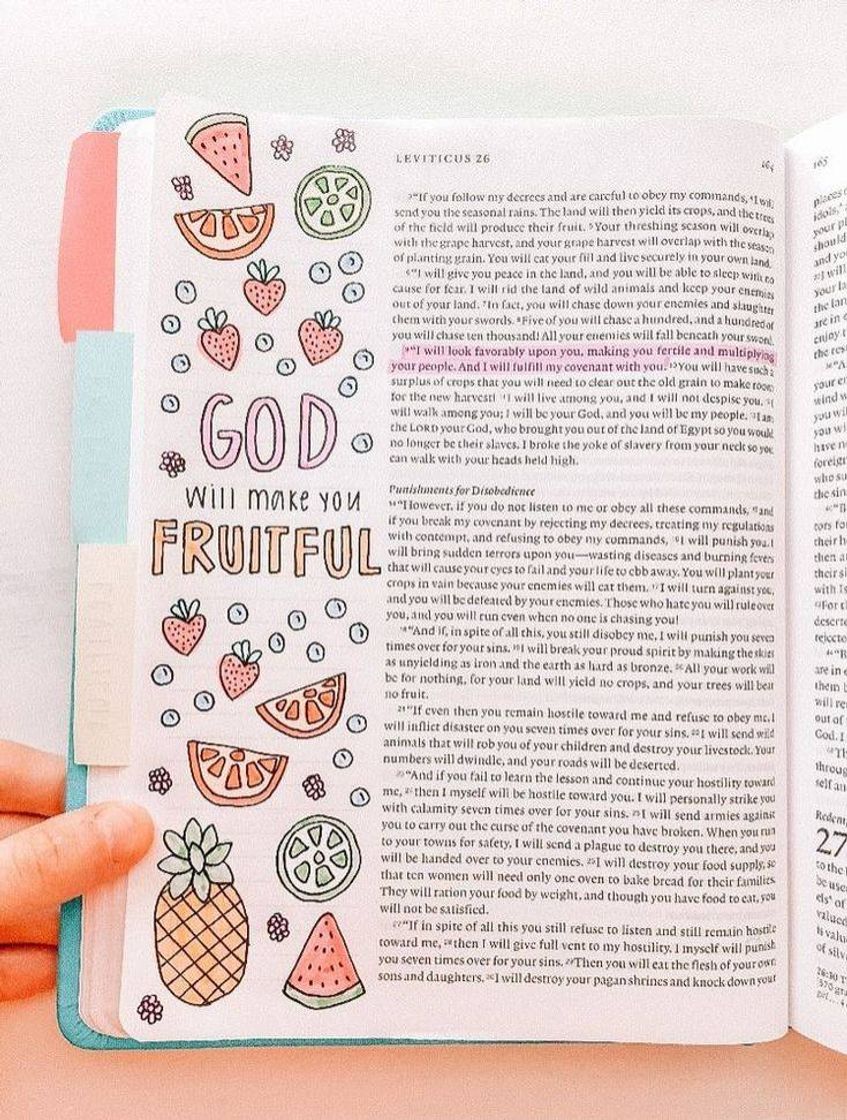 LEVITICUS 26
164
GOD
will make you
FRUITFUL
3“If you follow my decrees and are careful to obey my commands, 4I will
send you the seasonal rains. The land will then yield its crops, and the trees
of the field will produce their fruit. 5Your threshing season will overlap
with the grape harvest, and your grape harvest will overlap with the season
of planting grain. You will eat your fill and live securely in your own land.
6“I will give you peace in the land, and you will be able to sleep with no
cause for fear. I will rid the land of wild animals and keep your enemies
out of your land. 7In fact, you will chase down your enemies and slaughter
them with your swords. 8Five of you will chase a hundred, and a hundred of
you will chase ten thousand! All your enemies will fall beneath your sword.
9“I will look favorably upon you, making you fertile and multiplying
your people. And I will fulfill my covenant with you. 10You will have such a
surplus of crops that you will need to clear out the old grain to make room
for the new harvest! 11I will live among you, and I will not despise you. 12I
will walk among you; I will be your God, and you will be my people. 13I am
the LORD your God, who brought you out of the land of Egypt so you would
no longer be their slaves. I broke the yoke of slavery from your neck so you
can walk with your heads held high.
Punishments for Disobedience
14“However, if you do not listen to me or obey all these commands, 15and
if you break my covenant by rejecting my decrees, treating my regulations
with contempt, and refusing to obey my commands, 16I will punish you. I
will bring sudden terrors upon you—wasting diseases and burning fevers
that will cause your eyes to fail and your life to ebb away. You will plant your
crops in vain because your enemies will eat them. 17I will turn against you,
and you will be defeated by your enemies. Those who hate you will rule over
you, and you will run even when no one is chasing you!
18“And if, in spite of all this, you still disobey me, I will punish you seven
times over for your sins. 19I will break your proud spirit by making the skies
as unyielding as iron and the earth as hard as bronze. 20All your work will
be for nothing, for your land will yield no crops, and your trees will bear
no fruit.
21“If even then you remain hostile toward me and refuse to obey me, I
will inflict disaster on you seven times over for your sins. 22I will send wild
animals that will rob you of your children and destroy your livestock. Your
numbers will dwindle, and your roads will be deserted.
23“And if you fail to learn the lesson and continue your hostility toward
me, 24then I myself will be hostile toward you. I will personally strike you
with calamity seven times over for your sins. 25I will send armies against
you to carry out the curse of the covenant you have broken. When you run
to your towns for safety, I will send a plague to destroy you there, and you
will be handed over to your enemies. 26I will destroy your food supply, so
that ten women will need only one oven to bake bread for their families.
They will ration your food by weight, and though you have food to eat, you
will not be satisfied.
27“If in spite of all this you still refuse to listen and still remain hostile
toward me, 28then I will give full vent to my hostility. I myself will punish
you seven times over for your sins. 29Then you will eat the flesh of your own
sons and daughters. 30I will destroy your pagan shrines and knock down your
165
27